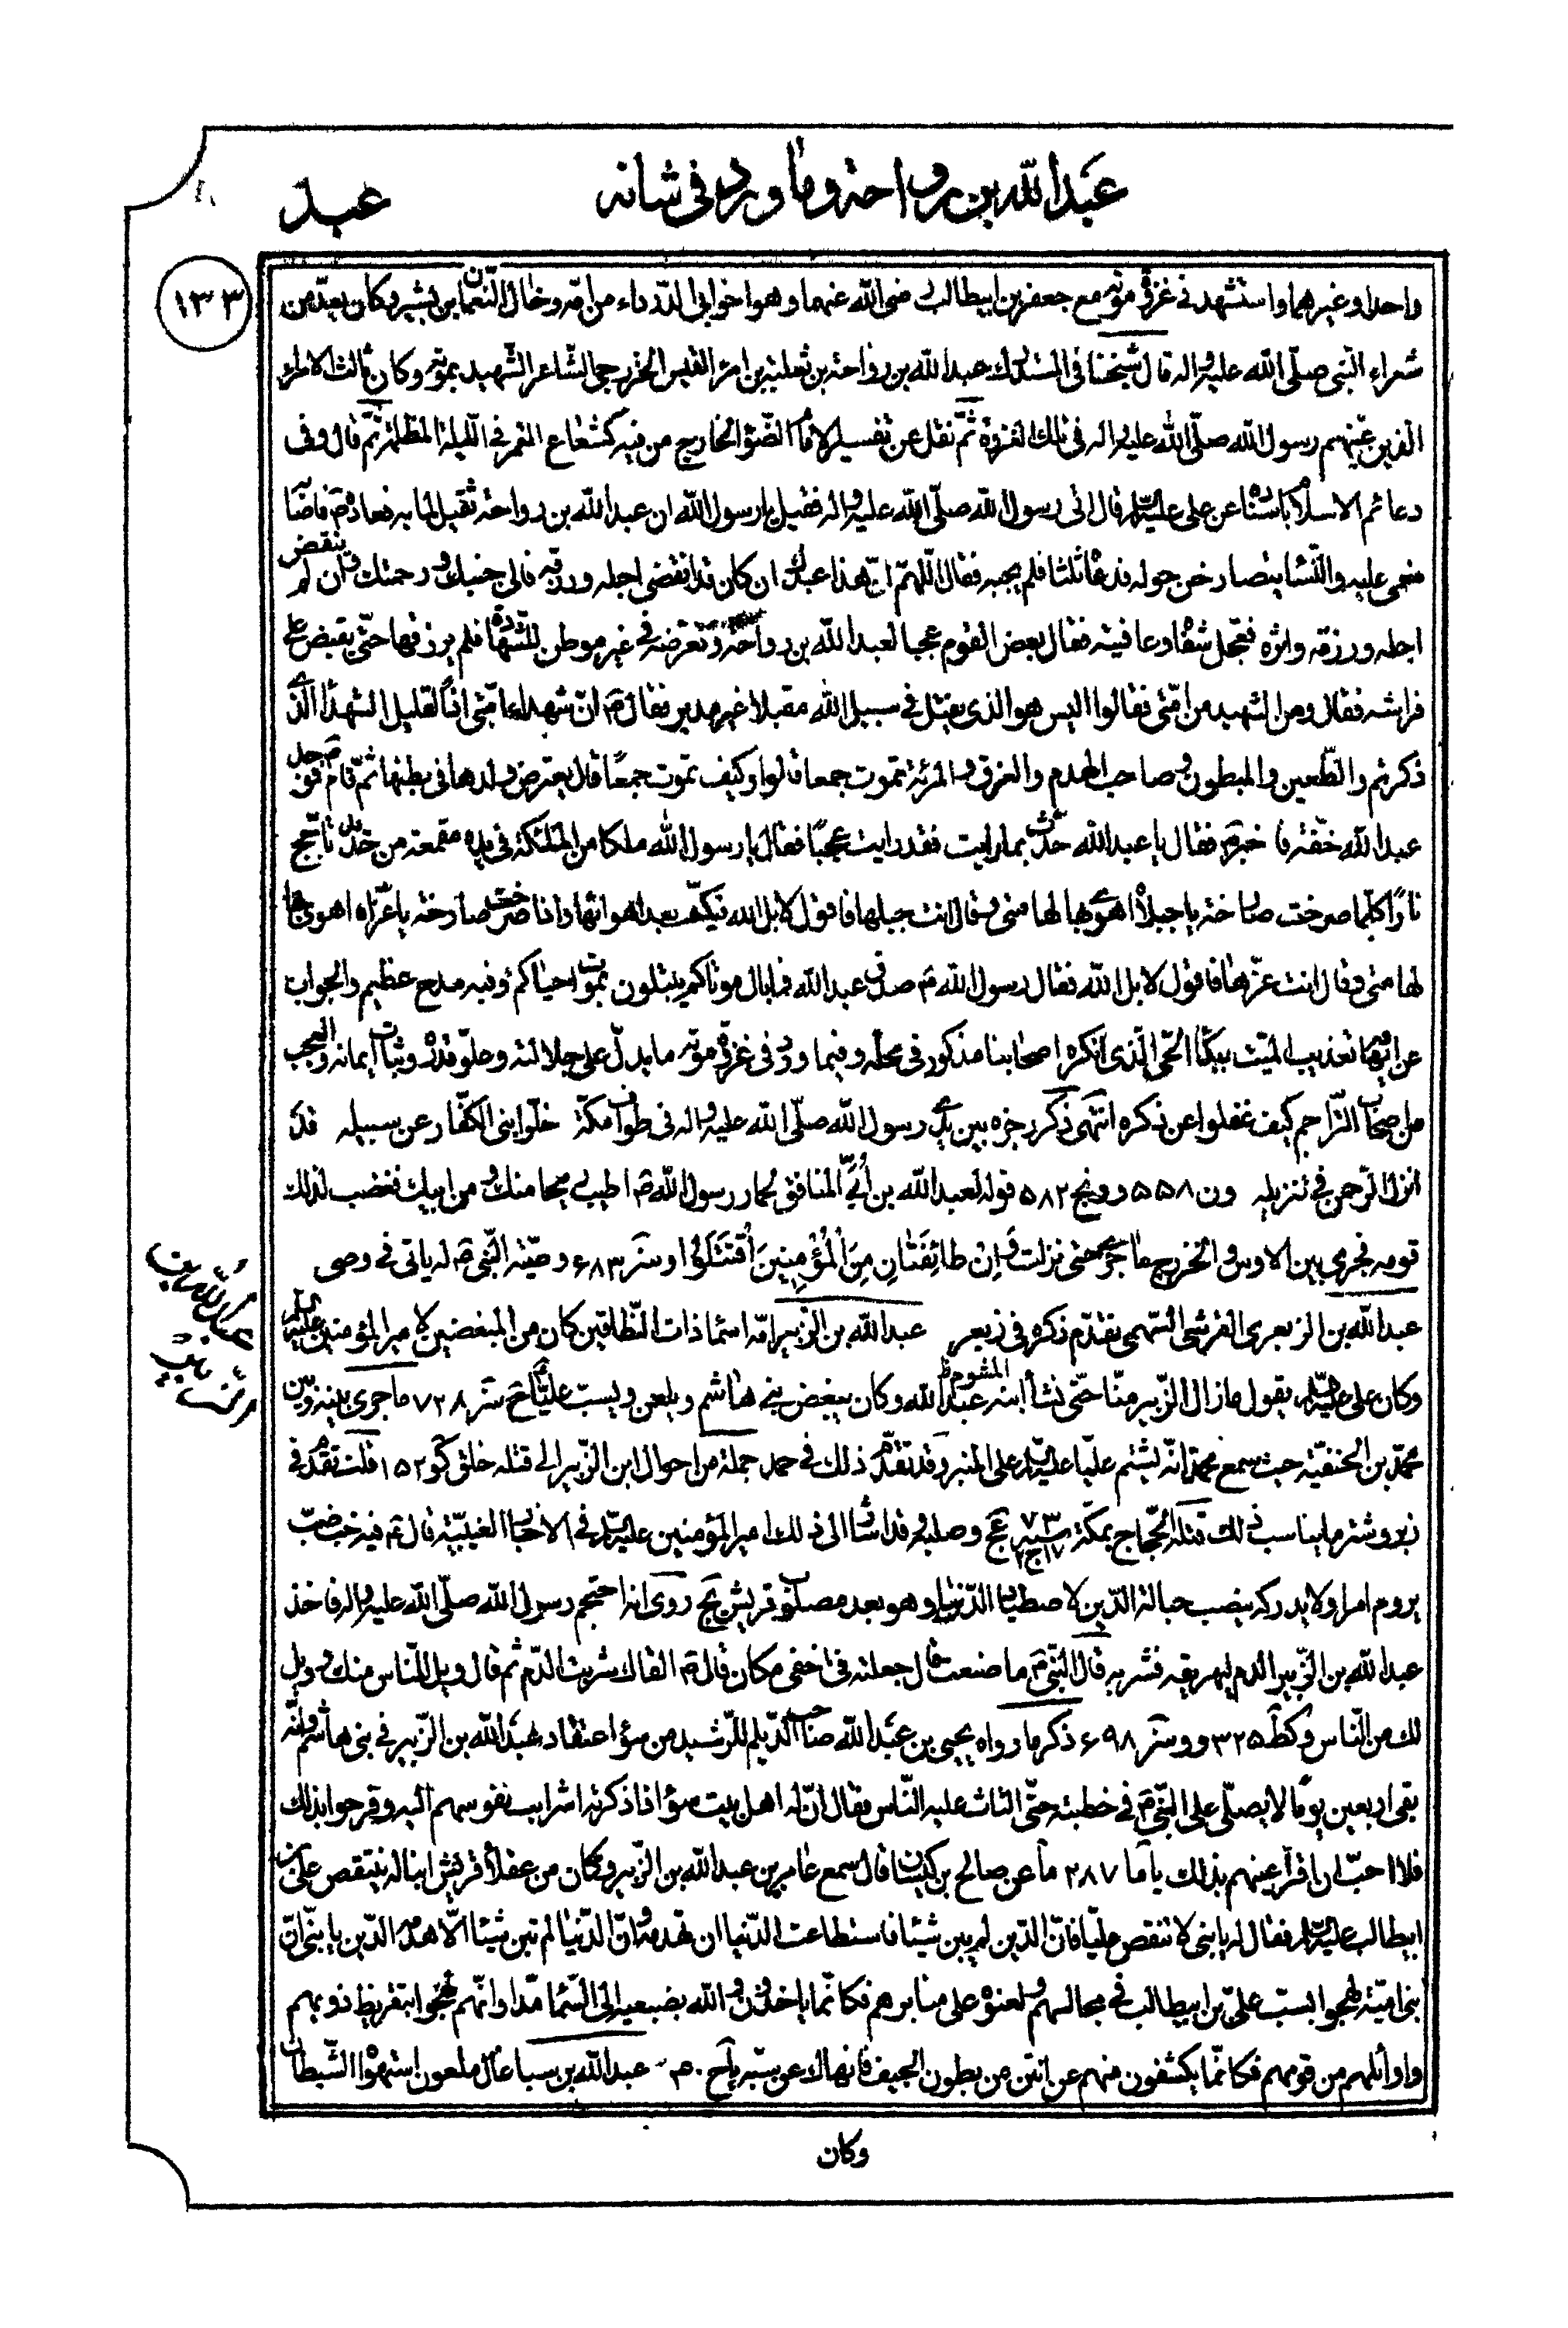 عبد الله بن رواحة وما ورد فى شانه
عبد
١٣٣
واحدا وغيرهما واستشهد فى غزوة موته مع جعفر بن ابيطالب رضى الله عنهما وهو اخو ابى الدرداء من امه وخال النعمان بن بشير وكان يعد من
شعراء النبى صلى الله عليه واله قال شيخنا فى المستدرك عبد الله بن رواحة بن ثعلبة بن امرء القيس الخزرجى الشاعر الشهيد بموته وكان ثالث الامراء
الذين عينهم رسول الله صلى الله عليه واله فى تلك الغزوة ثم نقل عن تفسير الامام الضوء الخارج من فيه كشعاع القمر فى الليلة المظلمة ثم قال وفى
دعائم الاسلام باسناده عن على عليه السلام قال اتى رسول الله صلى الله عليه واله فقيل يا رسول الله ان عبد الله بن رواحة ثقيل لما به فعاده ص فاصابه
مغمى عليه والنساء يتصارخن حوله فدعاه ثلثا فلم يجبه فقال اللهم ان هذا عبدك ان كان قد انقضى اجله ورزقه فالى جنبك و رحمتك وان لم ينقض
اجله ورزقه واثره فعجل شفاءه وعافيته فقال بعض القوم عجبا لعبد الله بن رواحة وتعرضه فى غير موطن للشهادة فلم يرزقها حتى يقبض على
فراشه فقال ومن الشهيد من امتى فقالوا اليس هو الذى يقتل فى سبيل الله مقبلا غير مدبر فقال ص ان شهداء امتى اذا لقليل الشهداء الذى
ذكرتم والطعين والمبطون وصاحب الهدم والغرق والمرئة تموت جمعا قالوا وكيف تموت جمعا قال يعترض ولدها فى بطنها ثم قام ص فوجد
عبد الله خفة فاخبر ص فقال يا عبد الله حدث بما رايت فقد رايت عجبا فقال يا رسول الله ملكا من الملئكة فى يده مقمعة من حديد تاجج
نارا كلما صرخت صارخة يا جبلاه اهوى بها لهامتى وقال انت جبلها فاقول لا بل الله فيكف بعد اهوائها واذا صرخت صارخة يا عزاه اهوى بها
لهامتى وقال انت عزها فاقول لا بل الله فقال رسول الله ص صدق عبد الله فما بال موتاكم يبتلون بموت احياكم وفيه مدح عظيم والجواب
عن ايهام تعذيب الميت ببكاء الحى الذى انكره اصحابنا مذكور فى محله وفيما ورد فى غزوة موته ما يدل على جلالته وعلو قدره وثبات ايمانه والعجب
من اصحاب التراجم كيف غفلوا عن ذكره انتهى ذكر رجزه بين يدى رسول الله صلى الله عليه واله فى طواف مكة خلوا بنى الكفار عن سبيله قد
انزل الرحمن فى تنزيله ون ٥٥٨ وونج ٥٨٢ قوله لعبد الله بن ابى المنافق لحمار رسول الله ص اطيب ريحا منك و من ابيك فغضب لذلك
قومه فجرى بين الاوس والخزرج ما جرى حتى نزلت وَاِنْ طائِفَتانِ مِنَ المُؤْمِنِينَ اقْتَتَلُوا وسر ٦٨٣ وصيته النبى ص له ياتى فى وصى
عبد الله بن الزبعرى القرشى السهمى تقدم ذكره فى زبعر عبد الله بن الزبير امه اسماء ذات النطاقين كان من المبغضين لامير المؤمنين عليه السلام
وكان على عليه السلام يقول ما زال الزبير منا حتى نشأ ابنه المشوم عبد الله وكان يبغض بنى هاشم ويلعن ويسب عليا ع ح سر ٧٢٨ ما جرى بينه وبين
محمد بن الحنفية حيث سمع محمد انه يشتم عليا عليه السلام على المنبر وقد تقدم ذلك فى حمد جملة من احوال ابن الزبير الى قتله خلق كو ١٥٢ قلت تقدم فى
زبر وشتر ما يناسب ذلك قتله الحجاج بمكة ١٧ ج ٢ سنة ٧٣ عج وصلبه وقد اشار الى ذلك امير المؤمنين عليه السلام فى الاخبار الغيبية قال ع فيه خب ضب
يروم امرا ولا يدركه ينصب حبالة الدين لاصطياد الدنيا وهو بعد مصلوب قريش يج روى انه احتجم رسول الله صلى الله عليه واله فاخذ
عبد الله بن الزبير الدم ليهريقه فشربه قال النبى ص ما صنعت قال جعلته فى اخفى مكان قال ص الفاك شربت الدم ثم قال ويل للناس منك وويل
لك من الناس وكط ٣٢٥ ووسر ٦٩٨ ذكر ما رواه يحيى بن عبد الله صاحب الديلم للرشيد من سوء اعتقاد عبد الله بن الزبير فى بنى هاشم وانه
بقى اربعين يوما لا يصلى على النبى ص فى خطبته حتى التاث عليه الناس فقال ان له اهل بيت سوء اذا ذكرته اشرابت نفوسهم اليه وفرحوا بذلك
فلا احب ان اقر اعينهم بذلك يا ما ٢٨٧ ما عن صالح بن كيسان قال سمع عامر بن عبد الله بن الزبير وكان من عقلاء قريش ابنا له ينتقص على بن
ابيطالب عليه السلام فقال له يا بنى لا تنتقص عليا فان الدين لم يبن شيئا فاستطاعت الدنيا ان تهدمه وان الدنيا لم تبن شيئا الا هدمه الدين يا بنى ان
بنى امية لهجوا بسب على بن ابيطالب فى مجالسهم ولعنوه على منابرهم فكانما ياخذون والله بضبعيه الى السماء مدا وانهم لهجوا بتقريظ ذويهم
واوائلهم من قومهم فكانما يكشفون منهم عن انتن من بطون الجيف فانهاك عن سبه ياح عبد الله بن سبا غال ملعون استهواه الشيطان
وكان